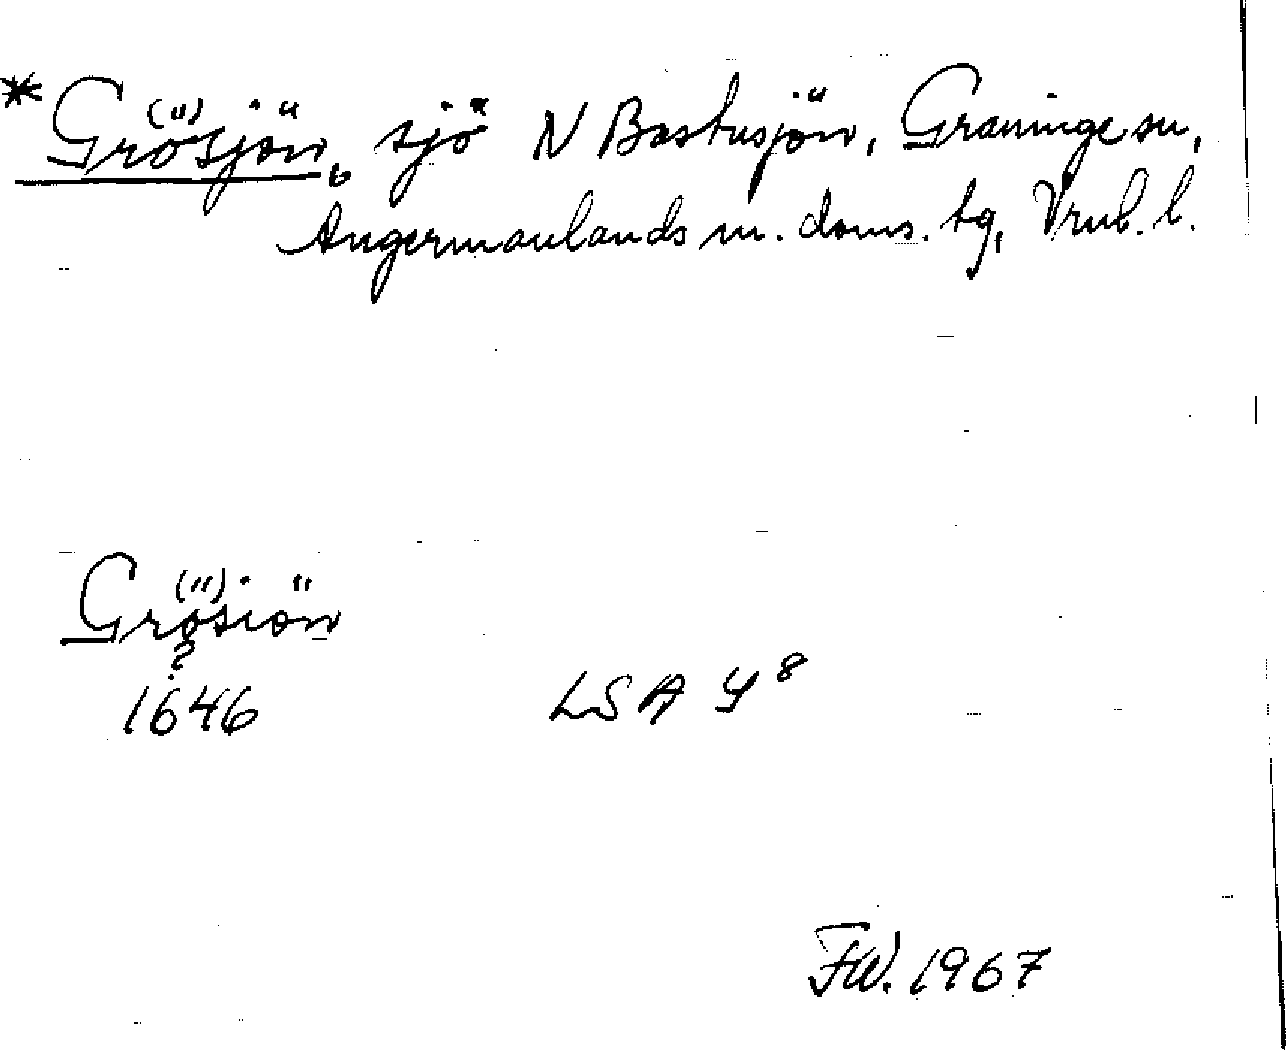 *Grö(")sjön, sjö N Bastusjön, Graninge sn,
Ångermanlands m. doms. tg, Vnl. l.
Grö(")siön
?
1646 LSA Y8
FW. 1967